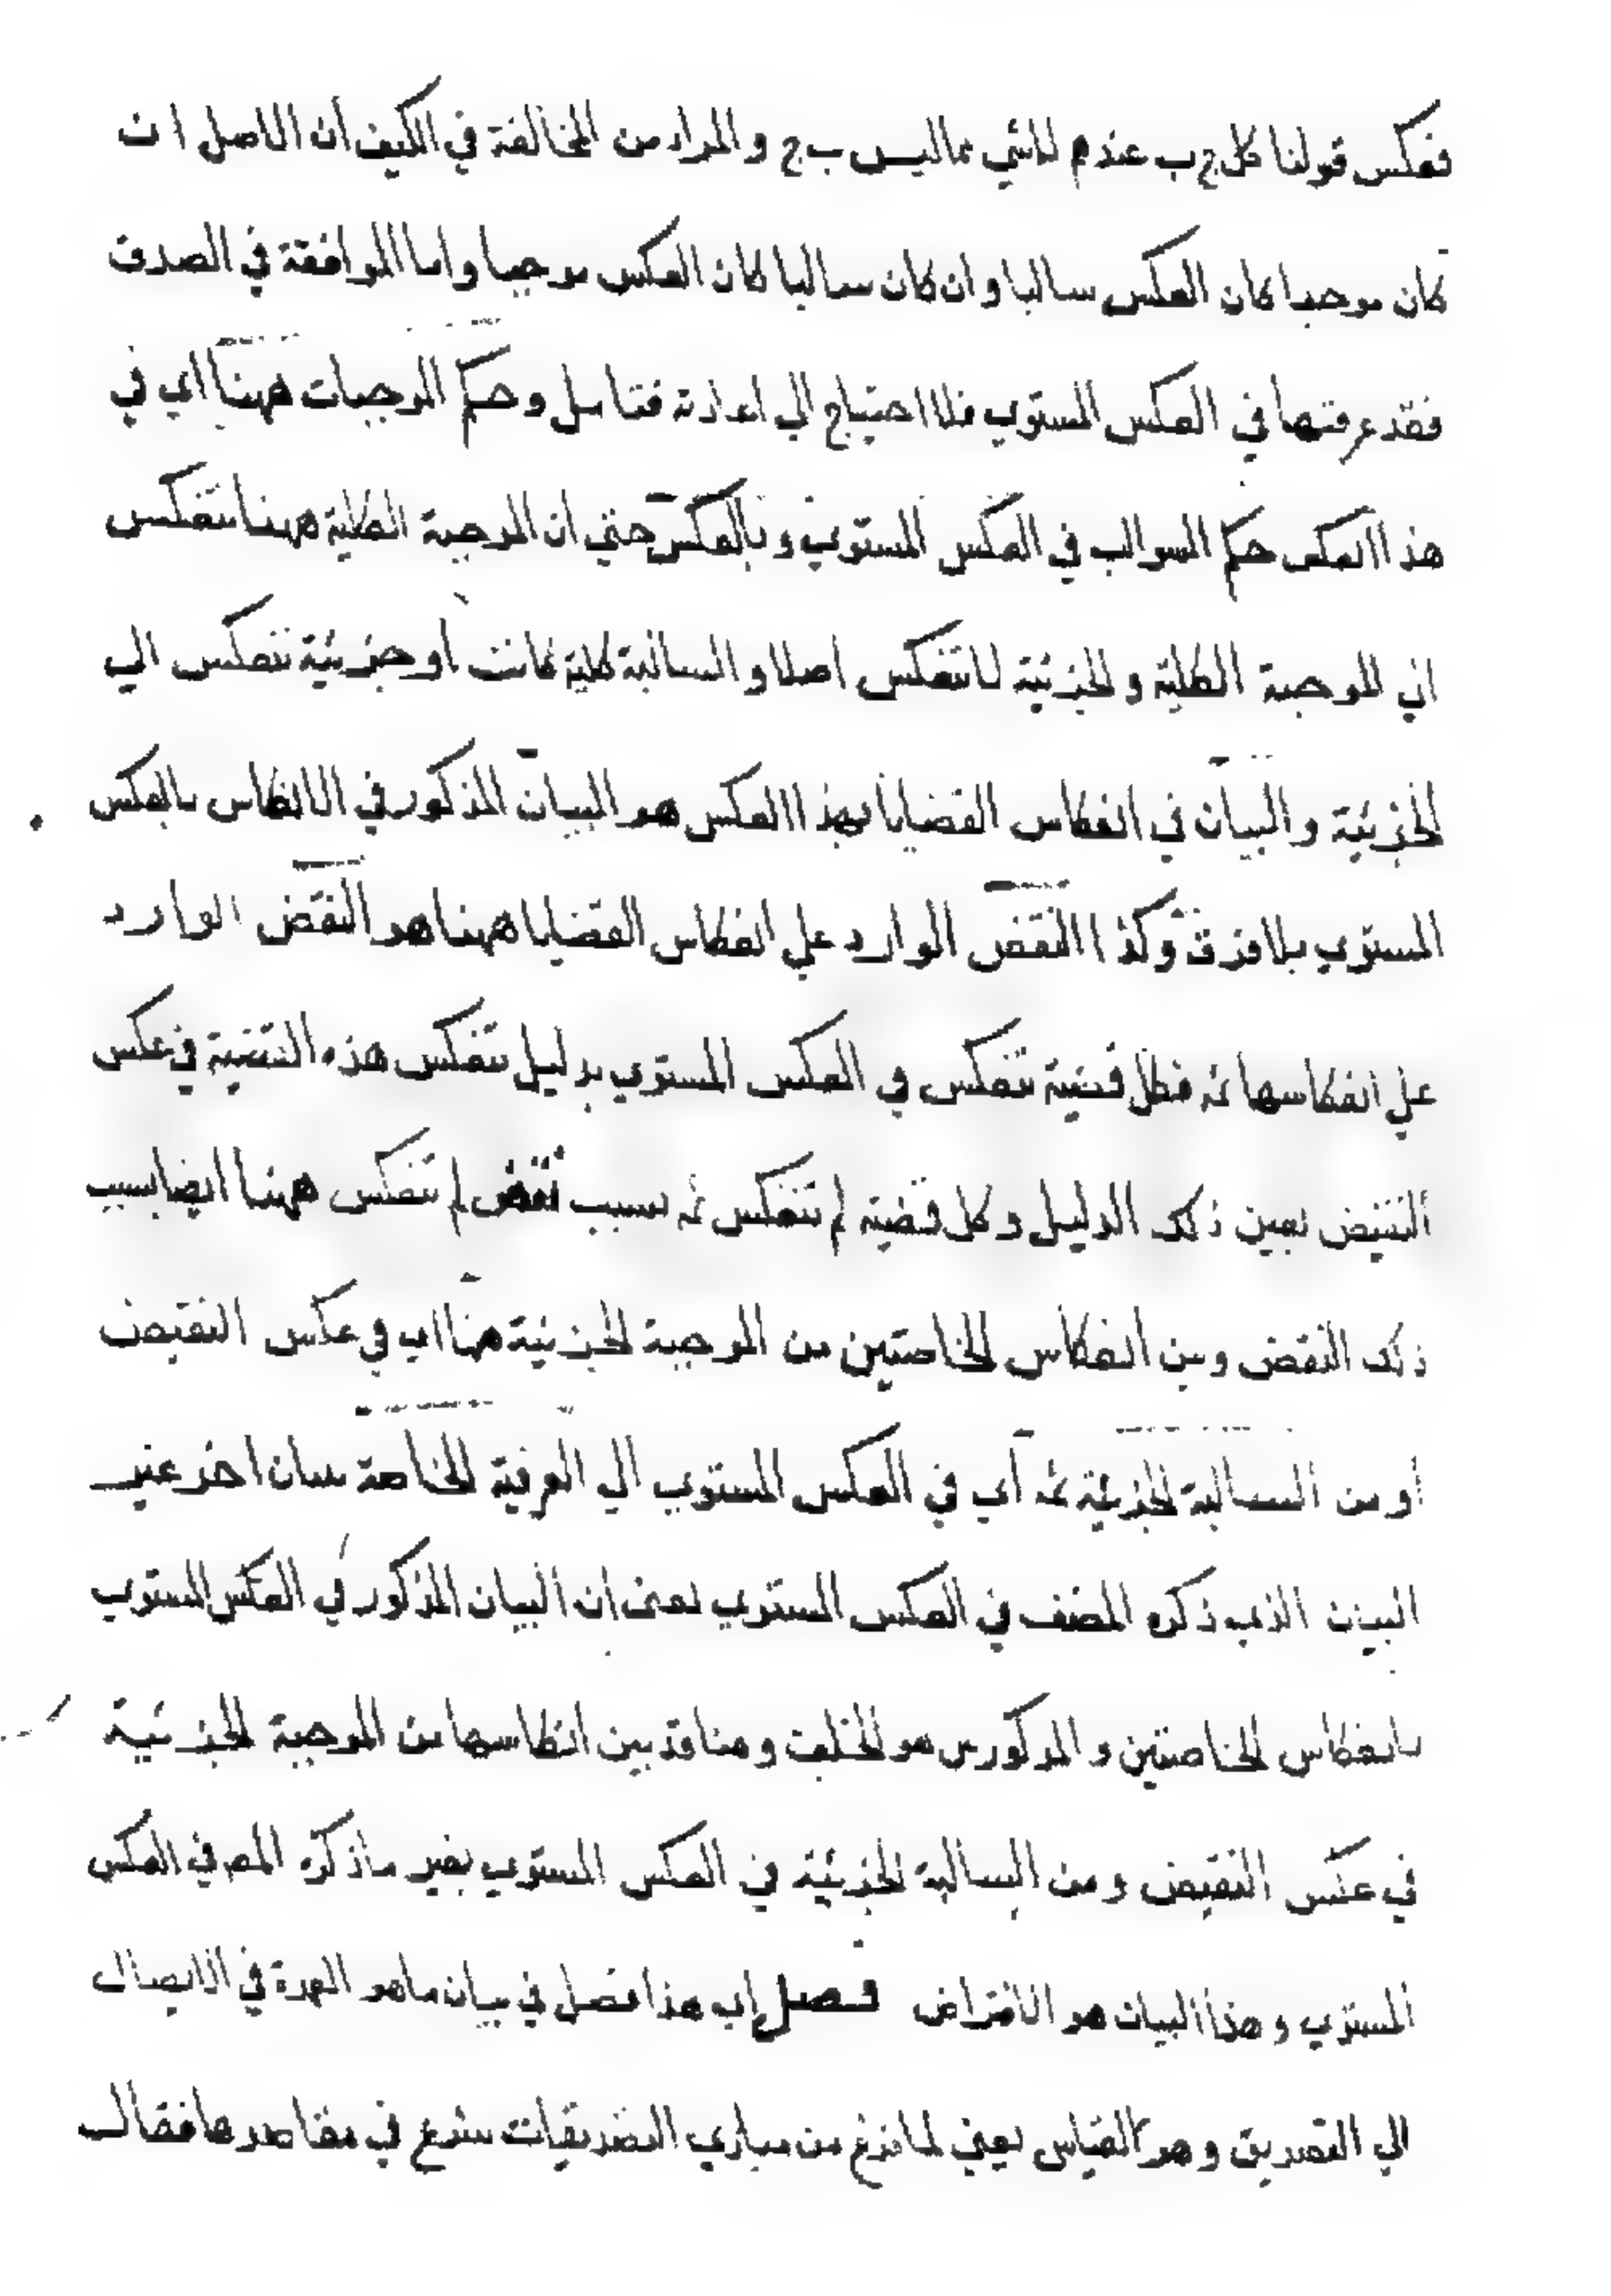 فعكس قولنا كل ج ب عندهم لا شي مما ليس ب ج والمراد من المخالفة في الكيف ان الاصل ان
كان موجبا كان العكس سالبا وان كان سالبا كان العكس موجبا واما الموافقة في الصدق
فقد عرفتها في العكس المستوي فلا احتياج الي اعادته فتامل وحكم الموجبات ههنا اي في
هذا العكس حكم السوالب في العكس المستوي وبالعكس حتي ان الموجبة الكلية ههنا تنعكس
الي الموجبة الكلية والجزئية لا تنعكس اصلا والسالبة كلية كانت او جزئية تنعكس الي
الجزئية والبيان في انعكاس القضايا بهذا العكس هو البيان المذكور في الانعكاس بالعكس
المستوي بلا فرق وكذا النقض الوارد علي انعكاس القضايا ههنا هو النقض الوارد
علي انعكاسها ثمه فكل قضية تنعكس في العكس المستوي بدليل تنعكس هذه القضية في عكس
النقيض بعين ذلك الدليل وكل قضية لم تنعكس ثمه بسبب نقض لم تنعكس ههنا ايضا بسبب
ذلك النقض وبين انعكاس الخاصتين من الموجبة الجزئية هنا اي في عكس النقيض
او من السالبة الجزئية ثمه اي في العكس المستوي الي العرفية الخاصة ببيان اخر غير
البيان الذي ذكره المصنف في العكس المستوي يعني ان البيان المذكور في العكس المستوي
بانعكاس الخاصتين والمذكور هو الخلف وهنا قد بين انعكاسها من الموجبة الجزئية
في عكس النقيض ومن السالبة الجزئية في العكس المستوي بغير ما ذكره المص في العكس
المستوي وهذا البيان هو الافتراض فصل اي هذا فصل في بيان ما هو العمدة في الايصال
الي التصديق وهو القياس يعني لما فرغ من مبادي التصديقات شرع في مقاصدها فقال